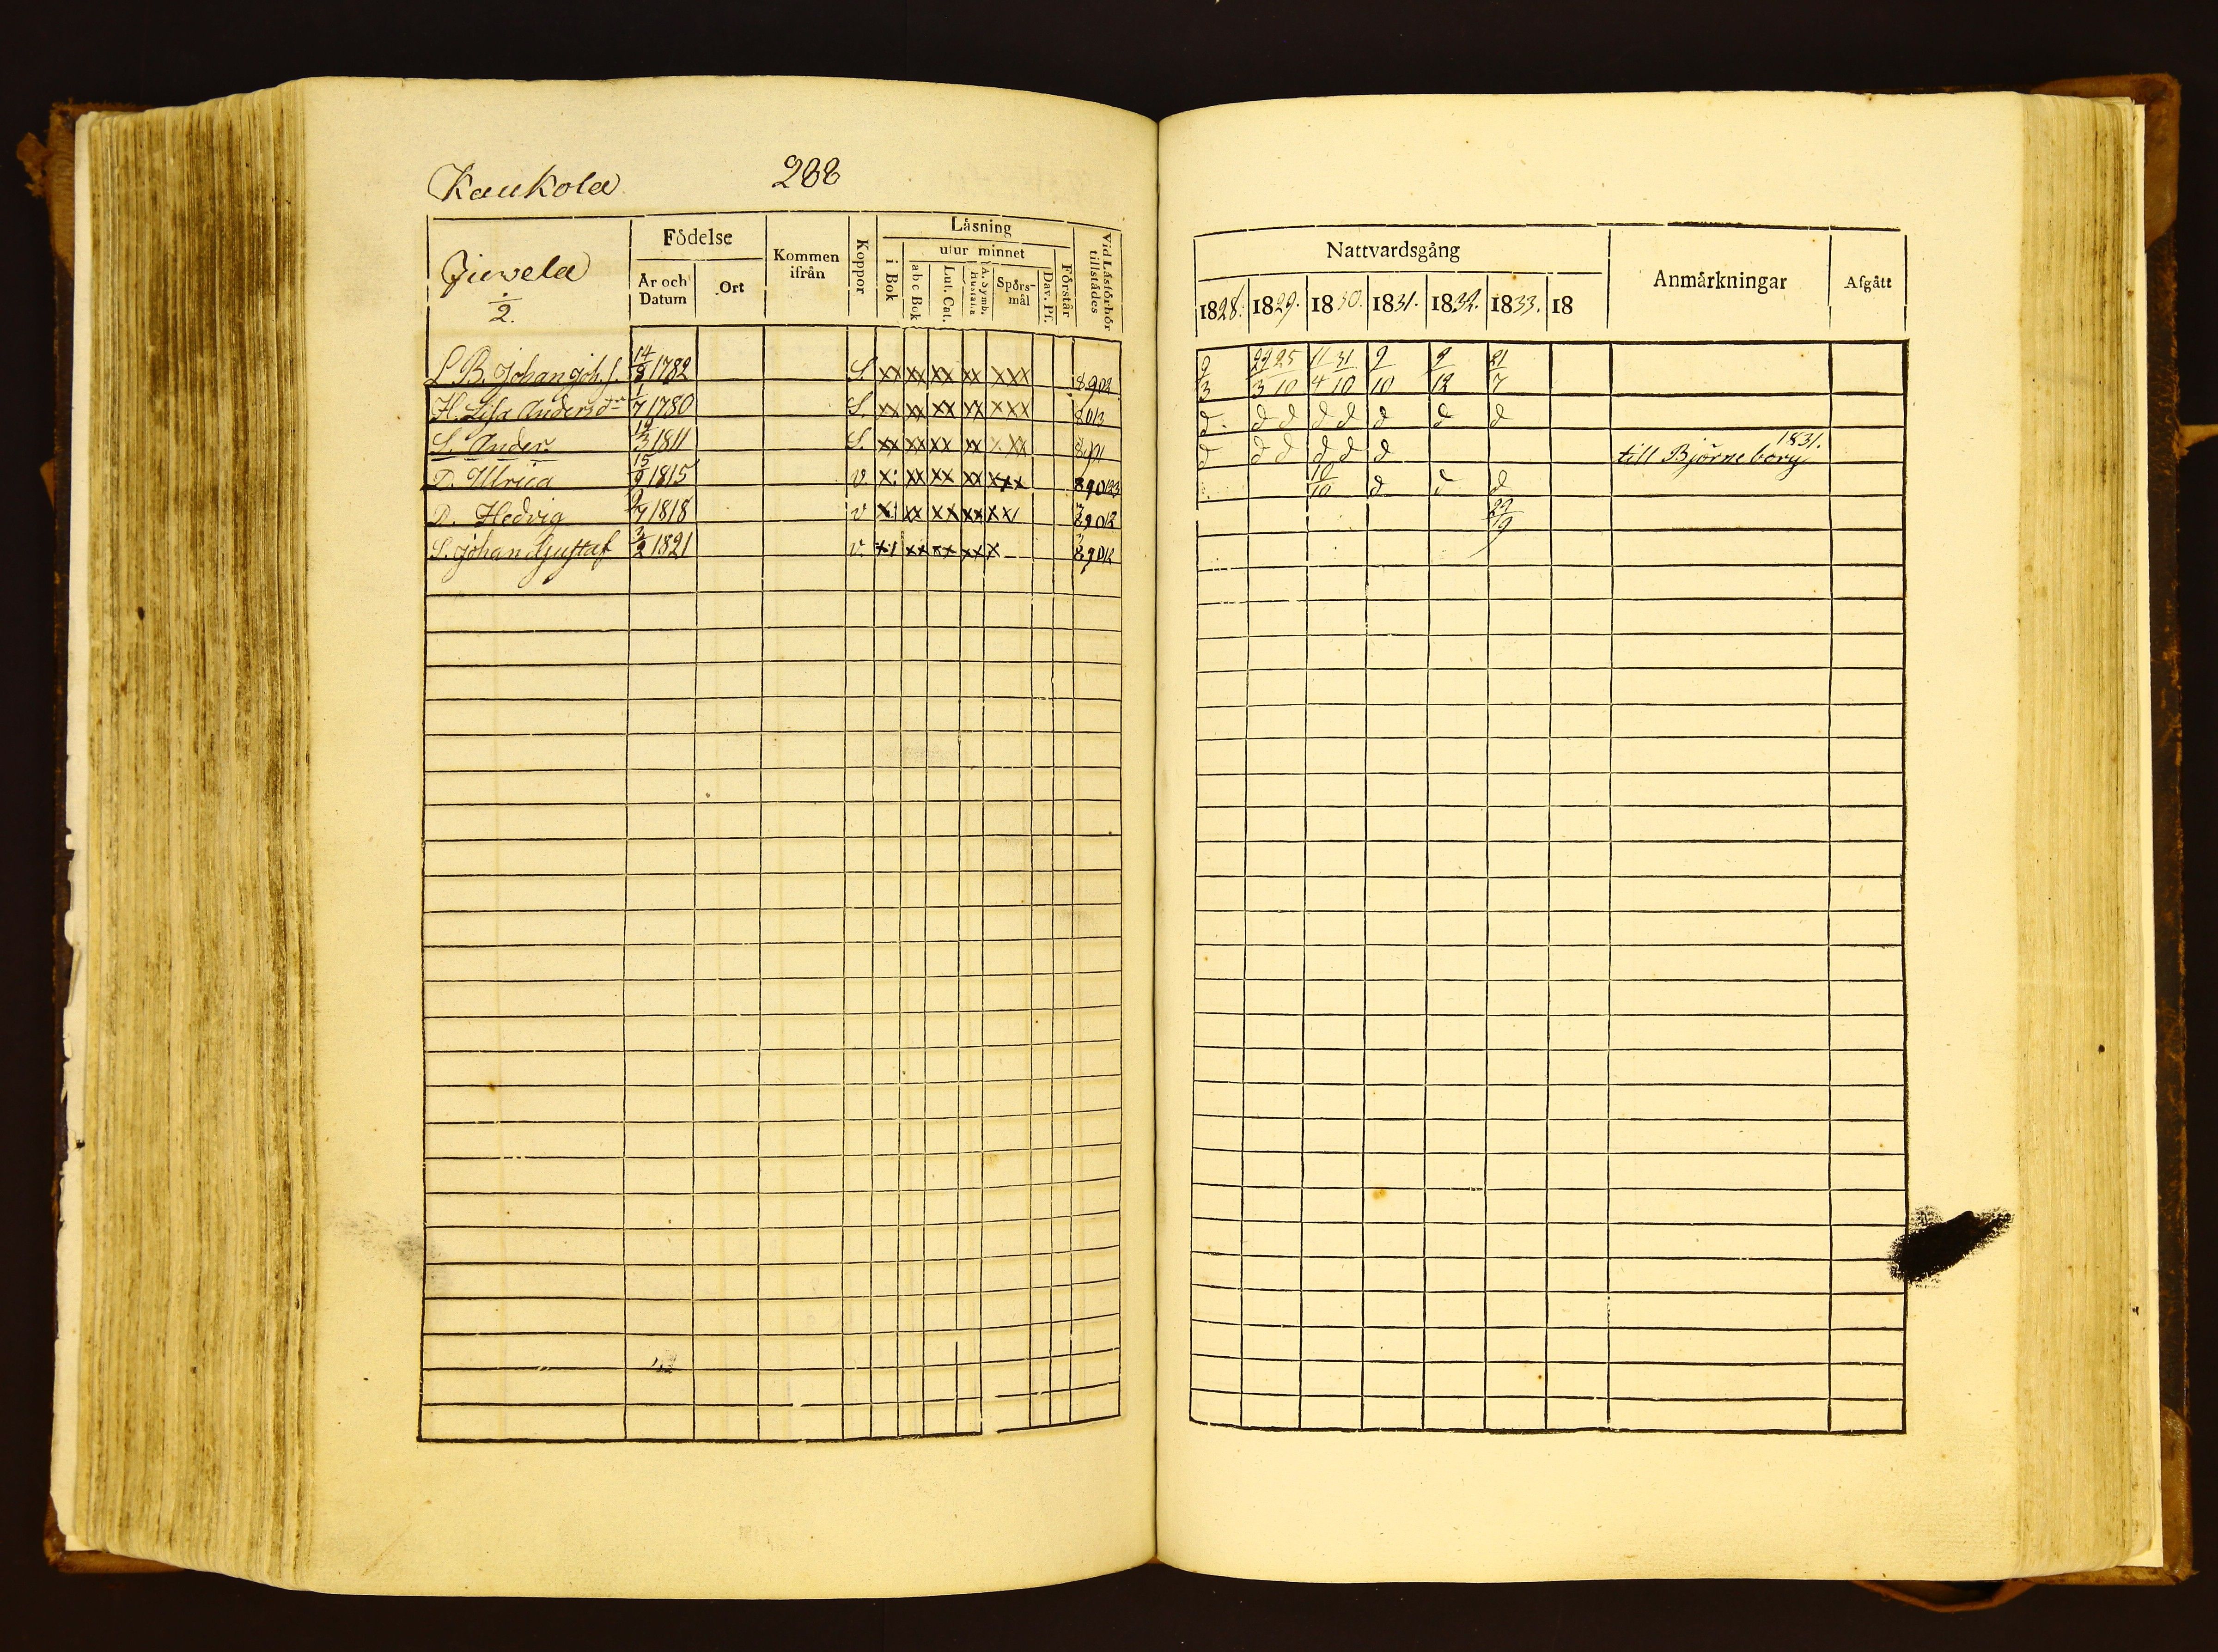 Kaukola 288
Juvela
2.
Födelse
År och Datum
Ort
Kommen ifrån
Koppor
Låsning
utur minnet
i Bok
abc Bok
Lut. Cat.
A. Symb. Hustafla
Spörsmål
Dav. Pf.
Förstår
Vid Låsförhör tillstådes
L. B. Johan Joh. s. 14/9 1782 S. xx xx xx xx xxx 8902
H. Lisa Andersdr 1/7 1780 S. xx xx xx xx xxx 8013
S. Ander. 19/3 1811 S. xx xx xx xx x xx 8901
D. Ulrica 15/9 1815 v. x: xx xx xx xxx 890123
D. Hedvig 9/7 1818 v x: xx xx xx xx/ 89012
S. Johan Gustaf 3/2 1821 v. x/ xx xx xx x 89012
Nattvardsgång
Anmårkningar
Afgått
1828. 1829. 1830. 1831. 1832. 1833. 18
9/3 29/3 25/10 11/4 31/10 9/10 9/12 21/7
d. d d d d d d d
d d d d d d till Björneborg 1831.
10/10 d d d
29/19